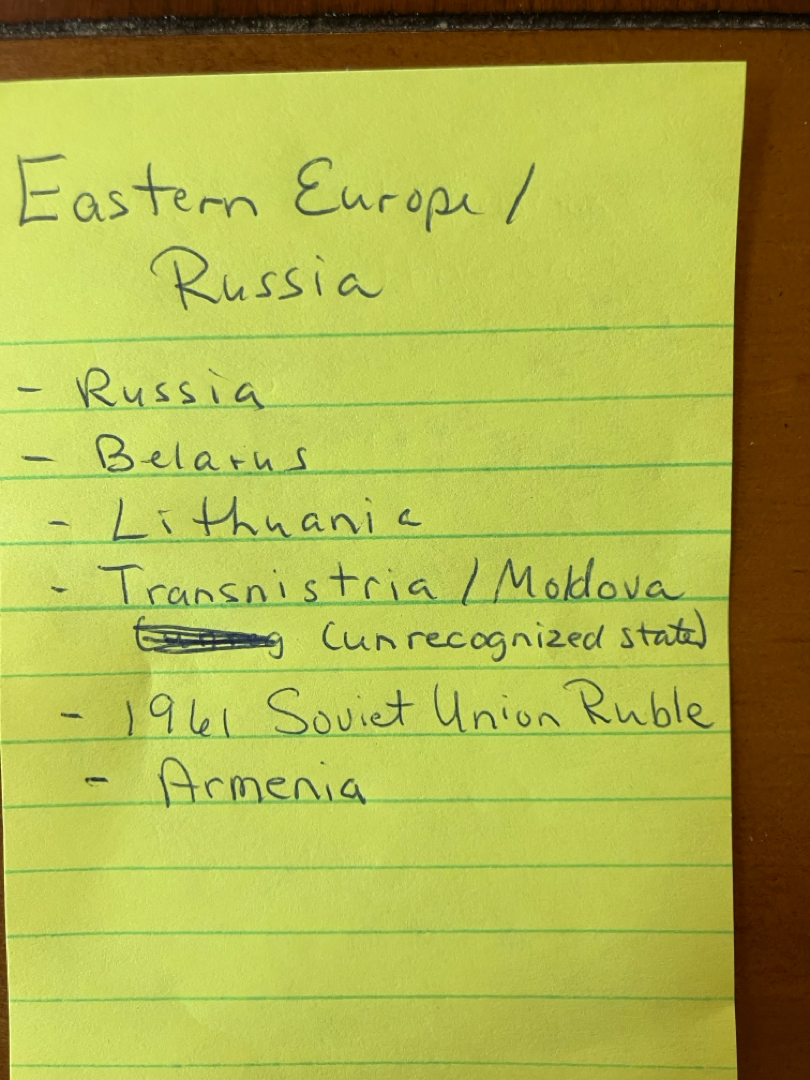 Eastern Europe /
Russia
- Russia
- Belarus
- Lithuania
- Transnistria / Moldova
(unrecognized state)
- 1961 Soviet Union Ruble
- Armenia